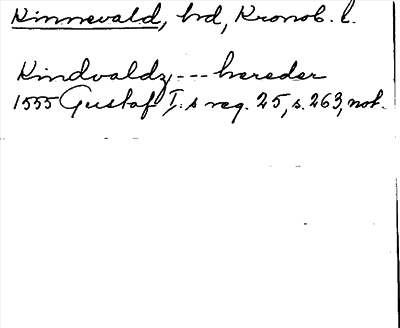 Kinnevald, hd, Kronob. l.
Kindvaldz --- hereder
1555 Gustaf I:s reg. 25, s. 263, not.